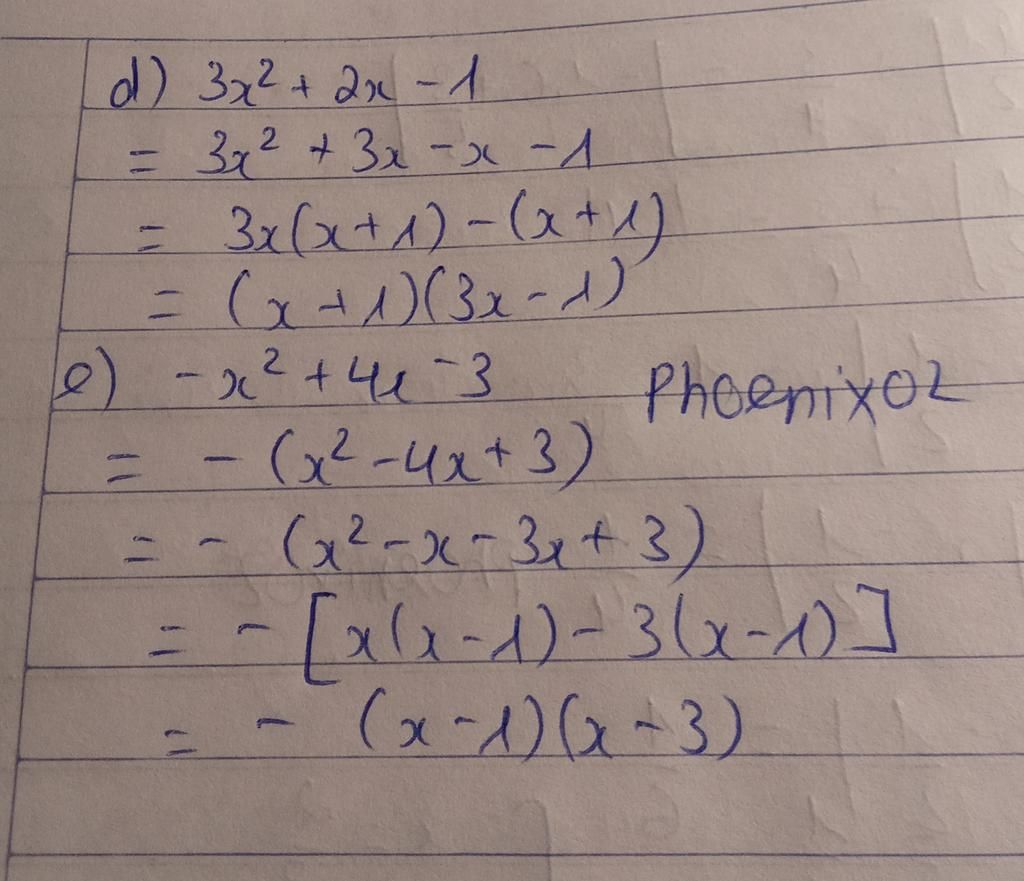 d) 3x² + 2x - 1
= 3x² + 3x - x - 1
= 3x(x + 1) - (x + 1)
= (x + 1)(3x - 1)
e) -x² + 4x - 3 Phoenixoz
= - (x² - 4x + 3)
= - (x² - x - 3x + 3)
= - [x(x - 1) - 3(x - 1)]
= - (x - 1)(x - 3)